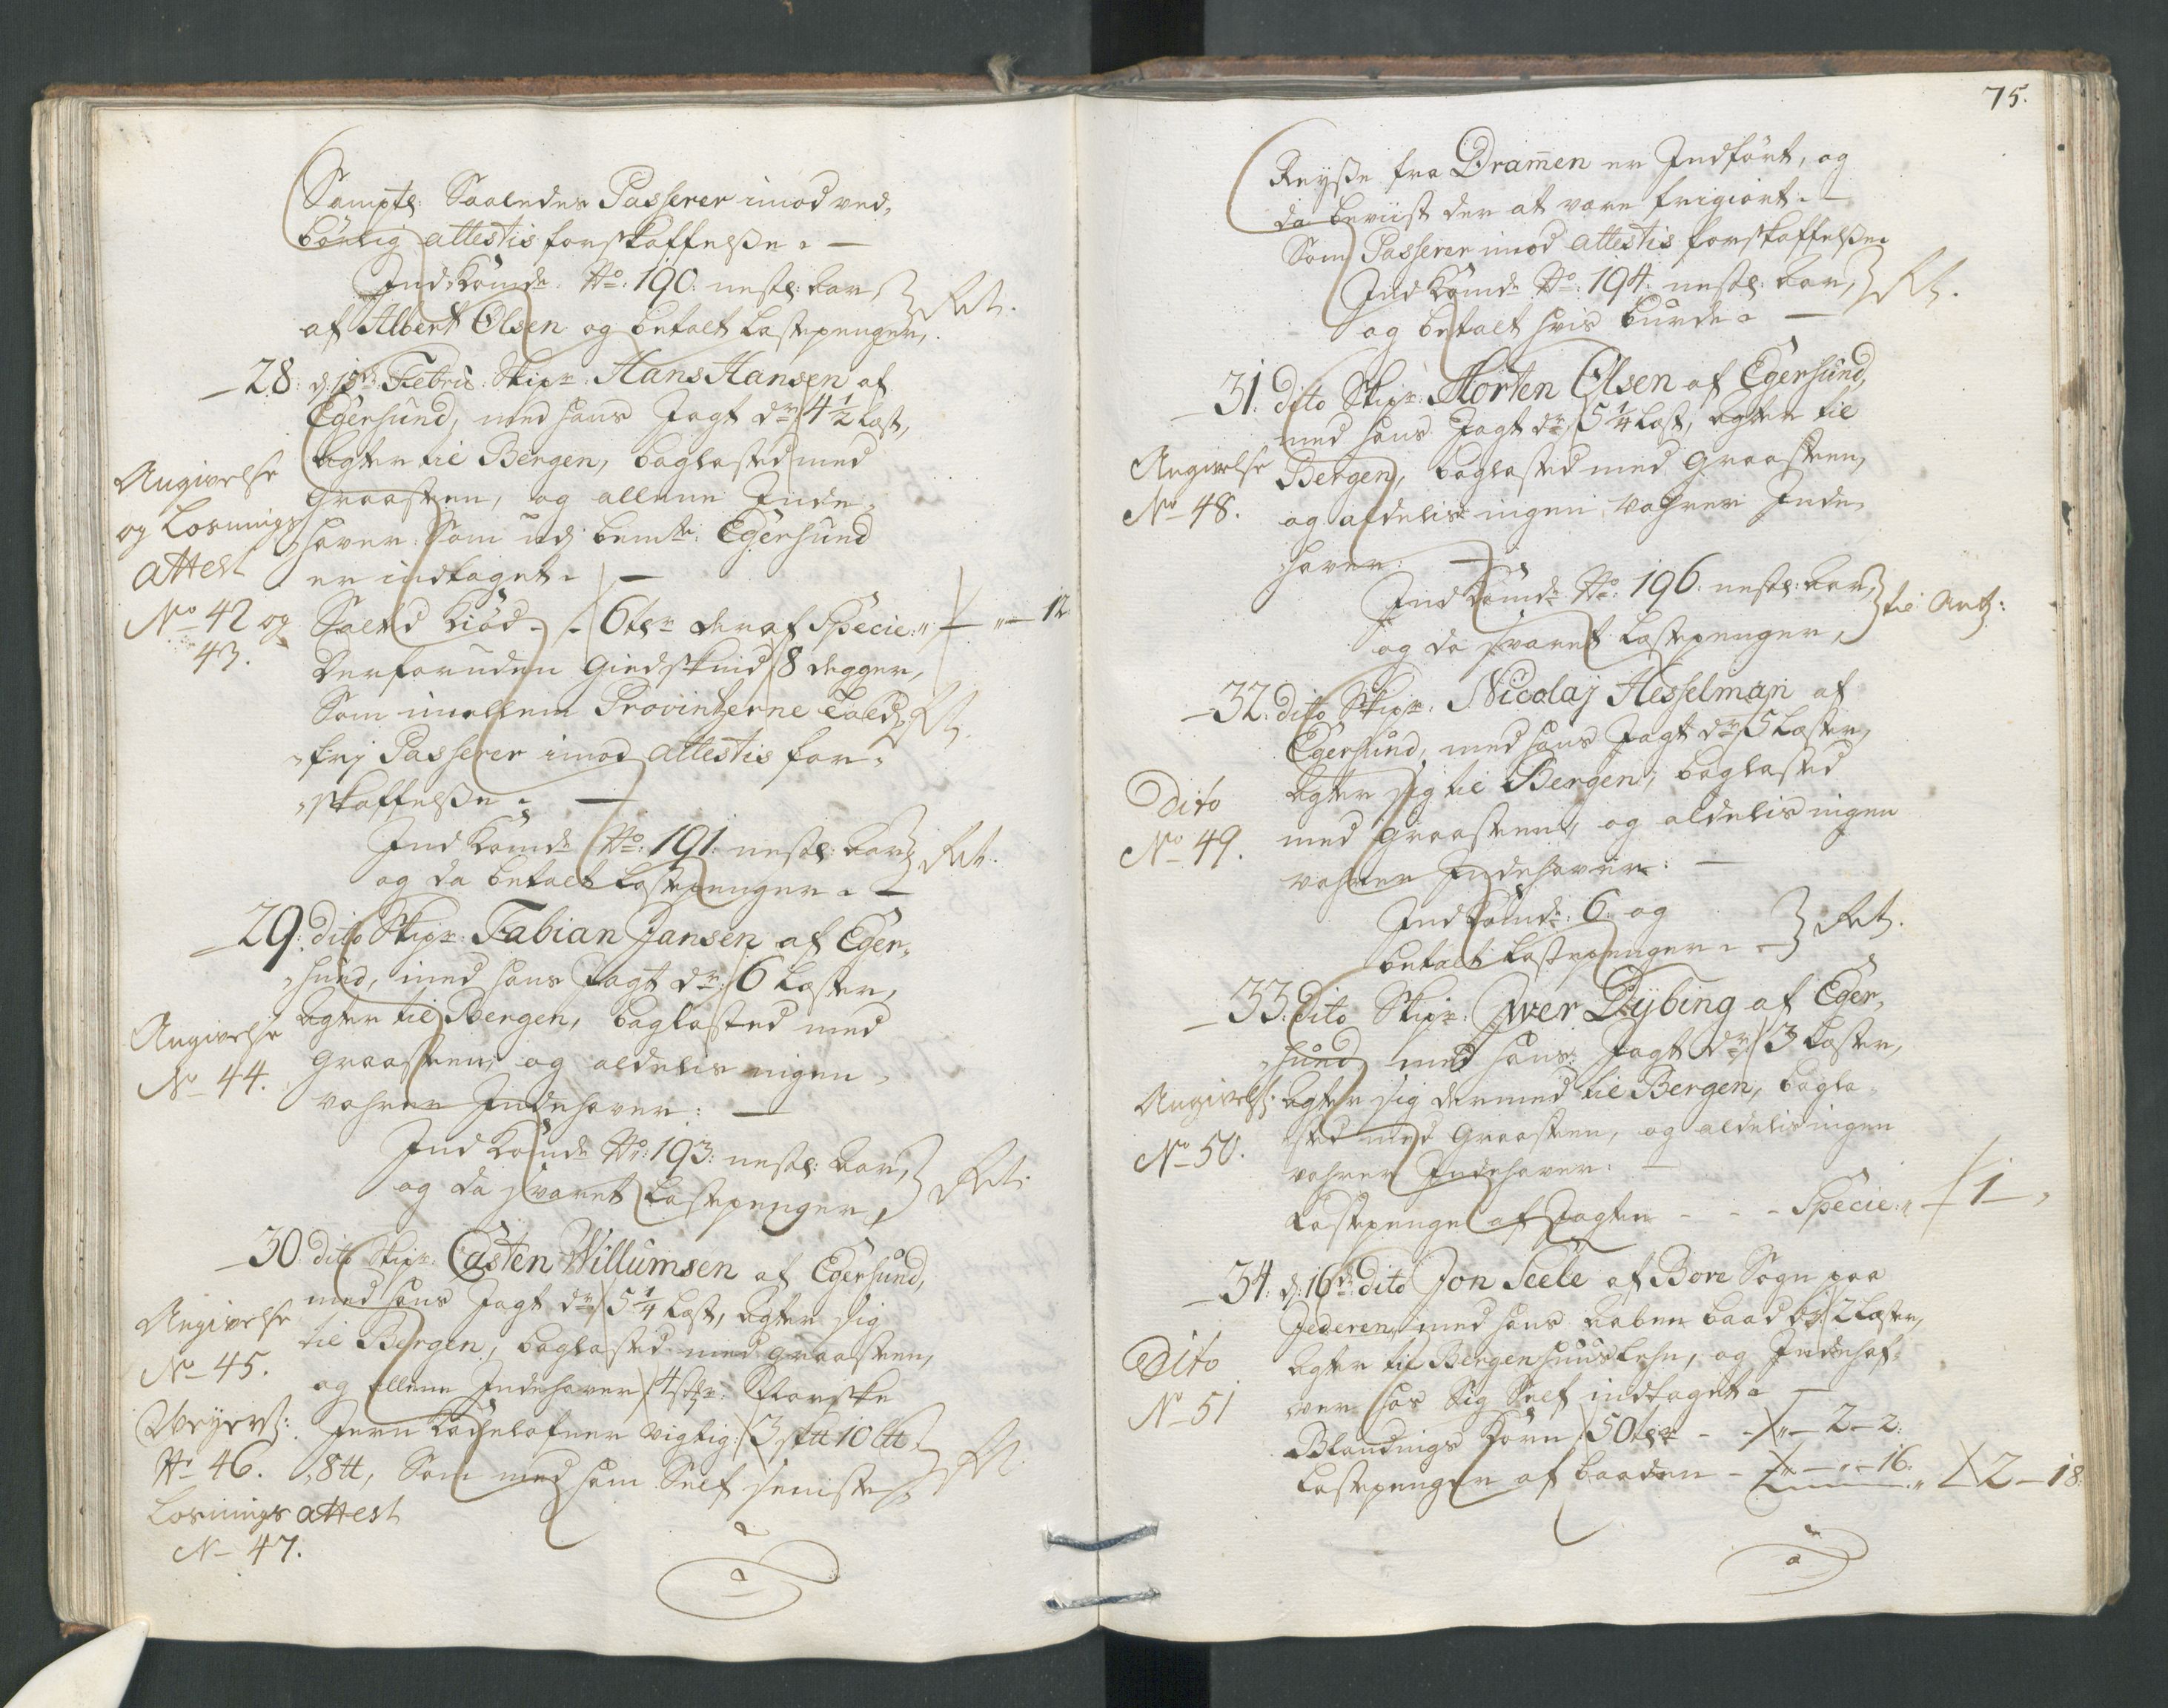 Samptl: Saaledes Passerer imod ved,
børlig attestis forskaffelße. —
Indkomde No: 190: nestl: Aar,
af Albert Olsen og betalt Lastepenger,
Rt.
28: d: 15de Febru: Skipr: Hans Hansen af
Egersund, med hans Jagt dr: 4½ Læst,
agter til Bergen, baglasted med
Graasteen, og allene Inde-
haver Som udj bemte: Egersund
er indtaget. —
Angivelse
og Losnings
attest
No 42 og
43.
Salted Kiød - - 6 tdr deraf Specie: " — " — 12
Derforuden Giedskind 8 degger,
Som imellem Provintzerne Told-
frj Passerer imod attestis for-
skaffelße. —
Indkomde No: 191: nestl: Aar
og da betalt Lastepenger. —
29: dito Skipr: Fabian Jansen af Eger-
sund, med hans Jagt dr: 6 Læster,
agter til Bergen, baglasted med
Graasteen, og aldelis ingen
vahrer Indehaver: —
Angivelse
No 44.
Indkomde No: 193: nestl: Aar,
og da svaret Lastepenger,
30: dito Skipr: Casten Willumsen af Egersund,
med hans Jagt dr: 5¼ Læst, agter sig
til Bergen, baglasted med Graasteen,
og allene Indehaver 4 stkr: Norske
Jern Kachelofner vigtig: 3 sktt 10 Ltt
8 tt, Som med ham Self seniste
Angivelse
No 45.
Veyers:
No 46.
Losnings attest
No 47.
75.
Reyße fra Dramen er Indført, og
da beviist der at være frigiort. —
Som Passerer imod attestis forskaffelße.
Indkomde No: 194: nestl: Aar,
og betalt hvis burde. —
31: dito Skipr: Morten Olsen af Egersund,
med hans Jagt dr: 5¼ Læst, agter til
Bergen, baglasted med Graasteen,
og aldelis ingen vahrer Inde-
haver: —
Angivelse
No 48.
Indkomde No: 196: nestl: Aar,
og da svaret Lastepenger,
32: dito Skipr: Nicolaj Hesselman af
Egersund, med hans Jagt dr: 5 Læster,
agter sig til Bergen, baglasted
med Graasteen, og aldelis ingen
vahrer Indehaver: —
Dito
No 49.
Indkomde: 6: og
betalt Lastepenger. —
33: dito Skipr: Iwer Dybing af Eger-
sund med hans Jagt dr: 3 Læster,
agter sig dermed til Bergen, bagla-
sted med Graasteen, og aldelis ingen
vahrer Indehaver: —
Angivels:
No 50.
Lastepenge af Jagten - - - Specie: " — 1 — "
34: d: 16de dito Jon Seele af Bore Sogn paa
Jederen, med hans aaben baad dr: 2 Læster,
agter til Bergenhuus Lehn, og Indehaf-
ver hos Sig Self indtaget. —
Dito
No 51
Blandings Korn 50 tdr - - " — 2 — 2:
Lastepenger af baaden - " — " — 16: " 2 — 18: